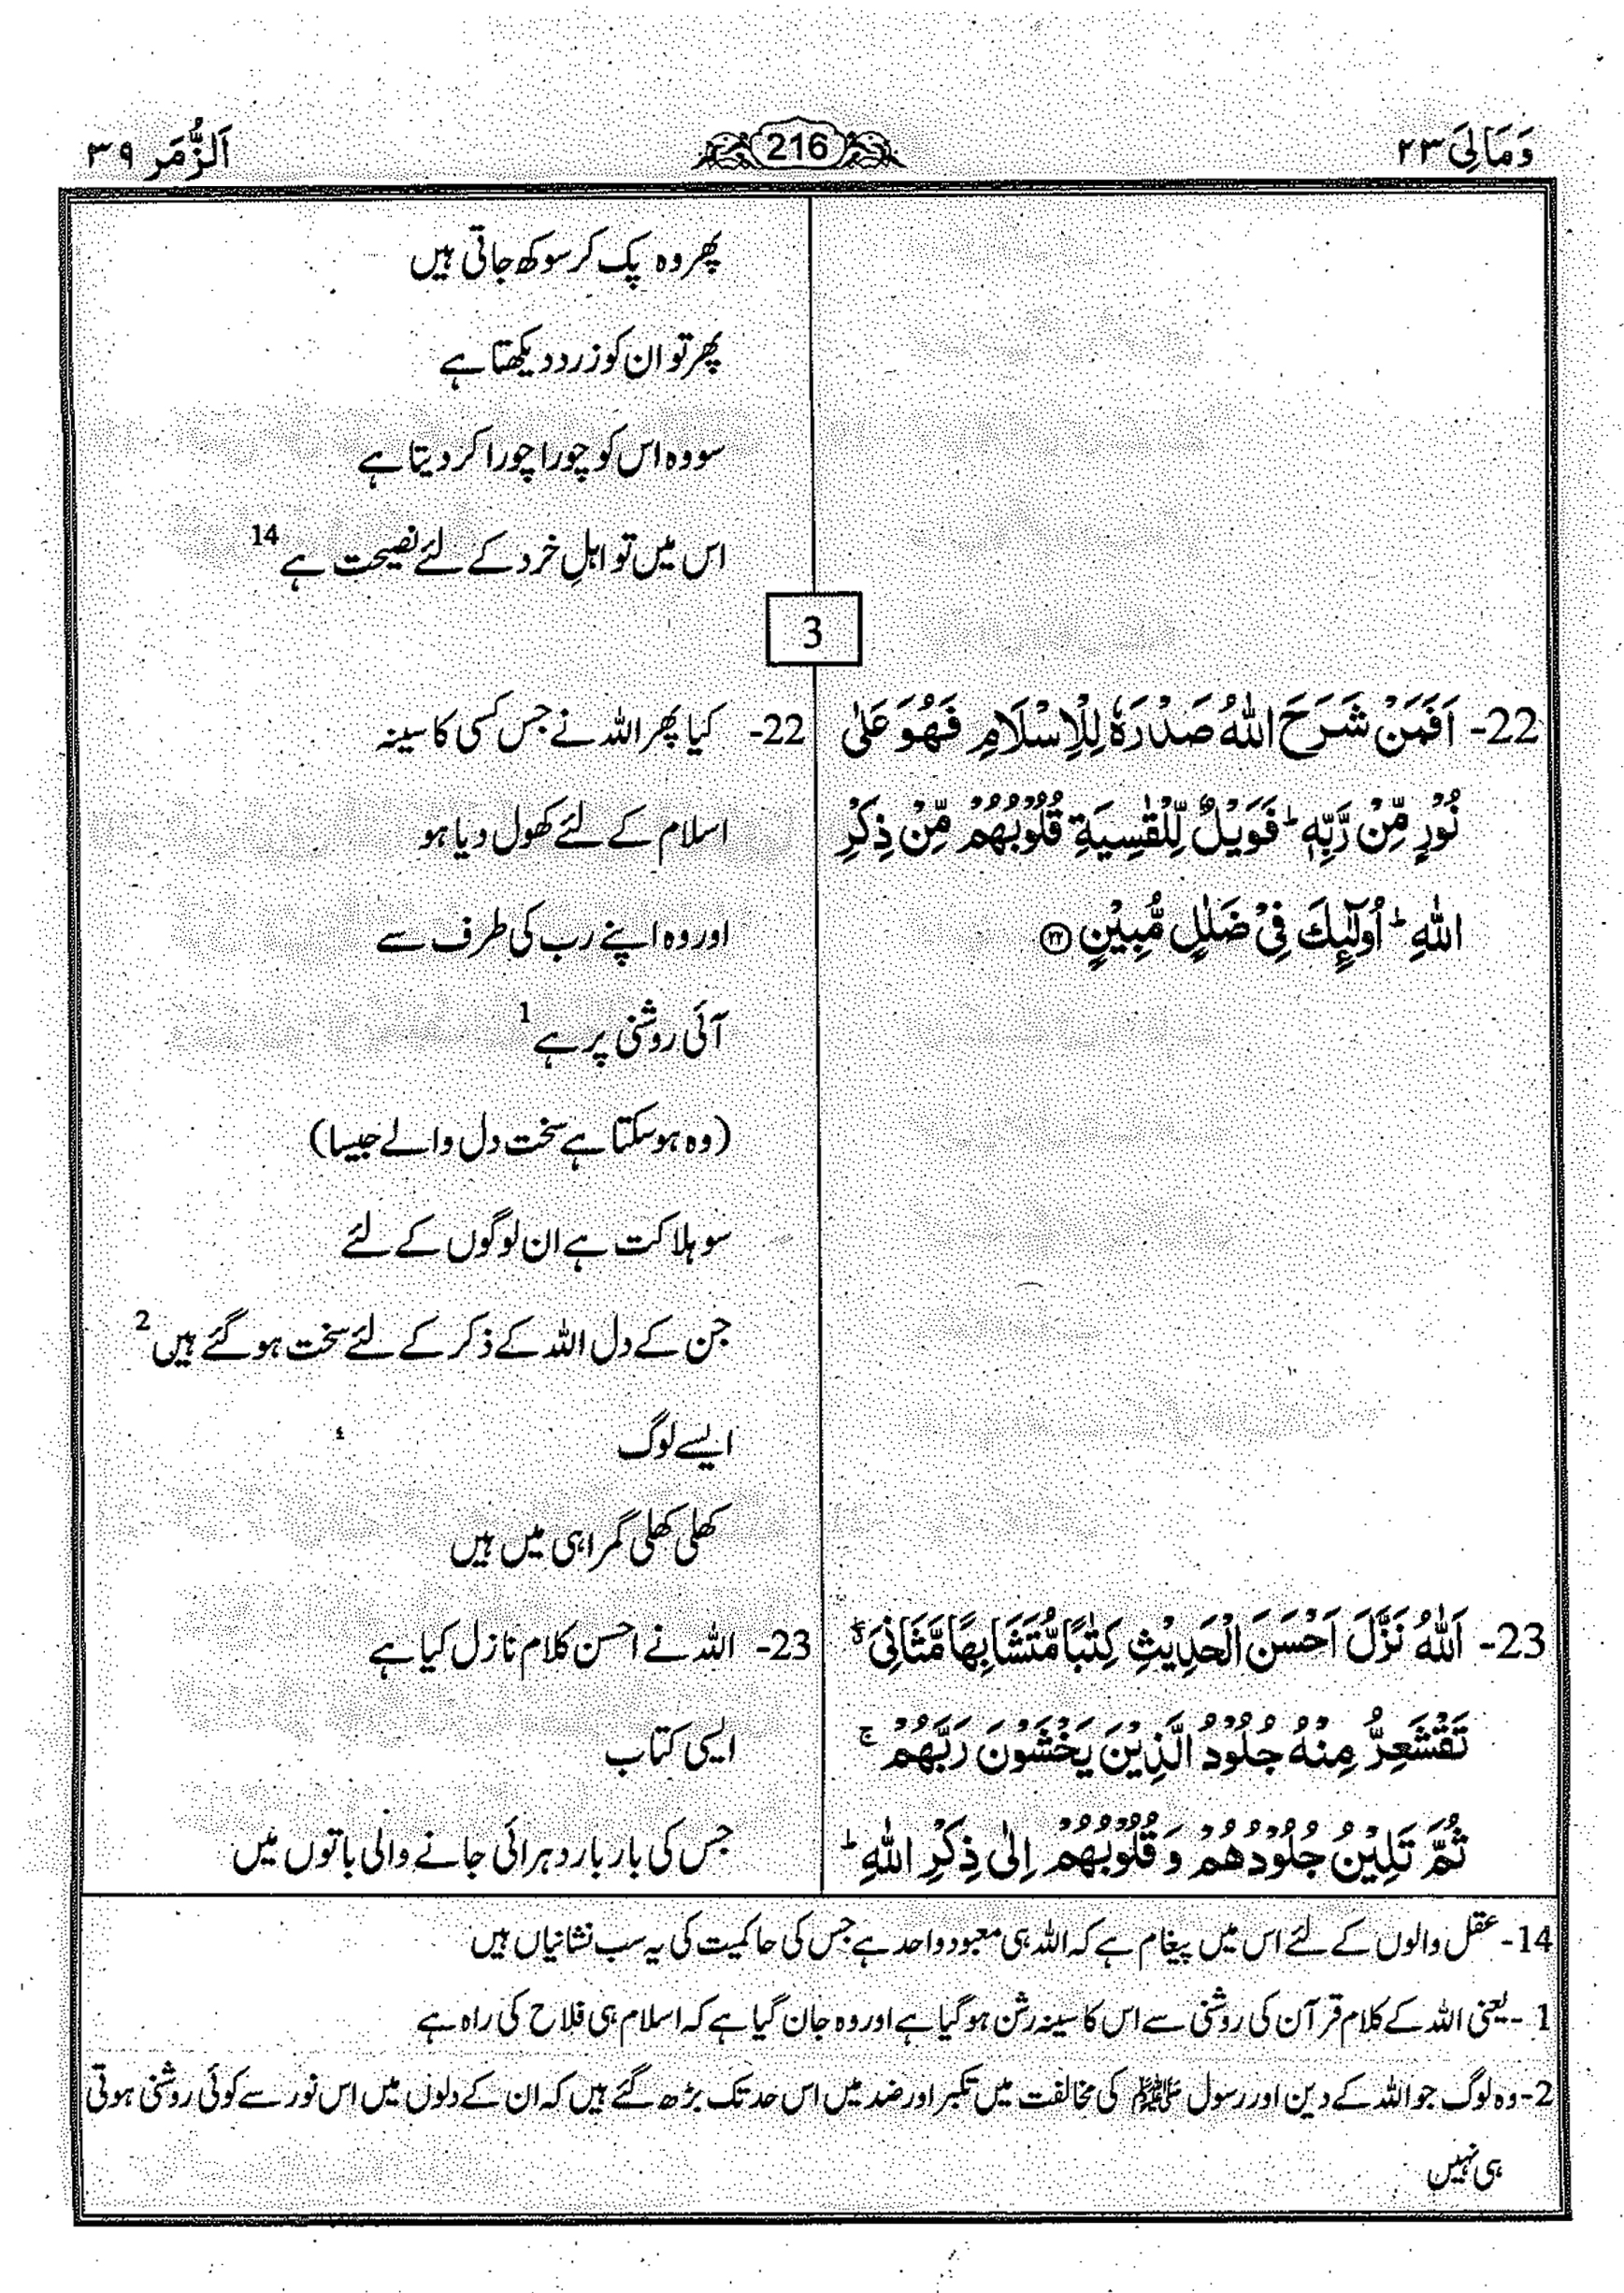 وَمَالِیَ ۲۳
216
اَلزُّمَر ۳۹
پھر وہ پک کر سوکھ جاتی ہیں
پھر تو ان کو زرد دیکھتا ہے
سو وہ اس کو چورا چورا کر دیتا ہے
اس میں تو اہلِ خرد کے لئے نصیحت ہے 14
3
22- اَفَمَنْ شَرَحَ اللّٰهُ صَدْرَهٗ لِلْاِسْلَامِ فَهُوَ عَلٰى
نُوْرٍ مِّنْ رَّبِّهٖ ؕ فَوَيْلٌ لِّلْقٰسِيَةِ قُلُوْبُهُمْ مِّنْ ذِكْرِ
اللّٰهِ ؕ اُولٰٓئِكَ فِیْ ضَلٰلٍ مُّبِيْنٍ ۲۲
22- کیا پھر اللہ نے جس کسی کا سینہ
اسلام کے لئے کھول دیا ہو
اور وہ اپنے رب کی طرف سے
آئی روشنی پر ہے 1
(وہ ہو سکتا ہے سخت دل والے جیسا)
سو ہلاکت ہے ان لوگوں کے لئے
جن کے دل اللہ کے ذکر کے لئے سخت ہو گئے ہیں 2
ایسے لوگ
کھلی کھلی گمراہی میں ہیں
23- اَللّٰهُ نَزَّلَ اَحْسَنَ الْحَدِيْثِ كِتٰبًا مُّتَشَابِهًا مَّثَانِیَ ۖۗ
تَقْشَعِرُّ مِنْهُ جُلُوْدُ الَّذِيْنَ يَخْشَوْنَ رَبَّهُمْ ۚ
ثُمَّ تَلِيْنُ جُلُوْدُهُمْ وَ قُلُوْبُهُمْ اِلٰى ذِكْرِ اللّٰهِ ؕ
23- اللہ نے احسن کلام نازل کیا ہے
ایسی کتاب
جس کی بار بار دہرائی جانے والی باتوں میں
14- عقل والوں کے لئے اس میں پیغام ہے کہ اللہ ہی معبود واحد ہے جس کی حاکمیت کی یہ سب نشانیاں ہیں
1- یعنی اللہ کے کلام قرآن کی روشنی سے اس کا سینہ رشن ہو گیا ہے اور وہ جان گیا ہے کہ اسلام ہی فلاح کی راہ ہے
2- وہ لوگ جو اللہ کے دین اور رسول ﷺ کی مخالفت میں تکبر اور ضد میں اس حد تک بڑھ گئے ہیں کہ ان کے دلوں میں اس نور سے کوئی روشنی ہوتی
ہی نہیں